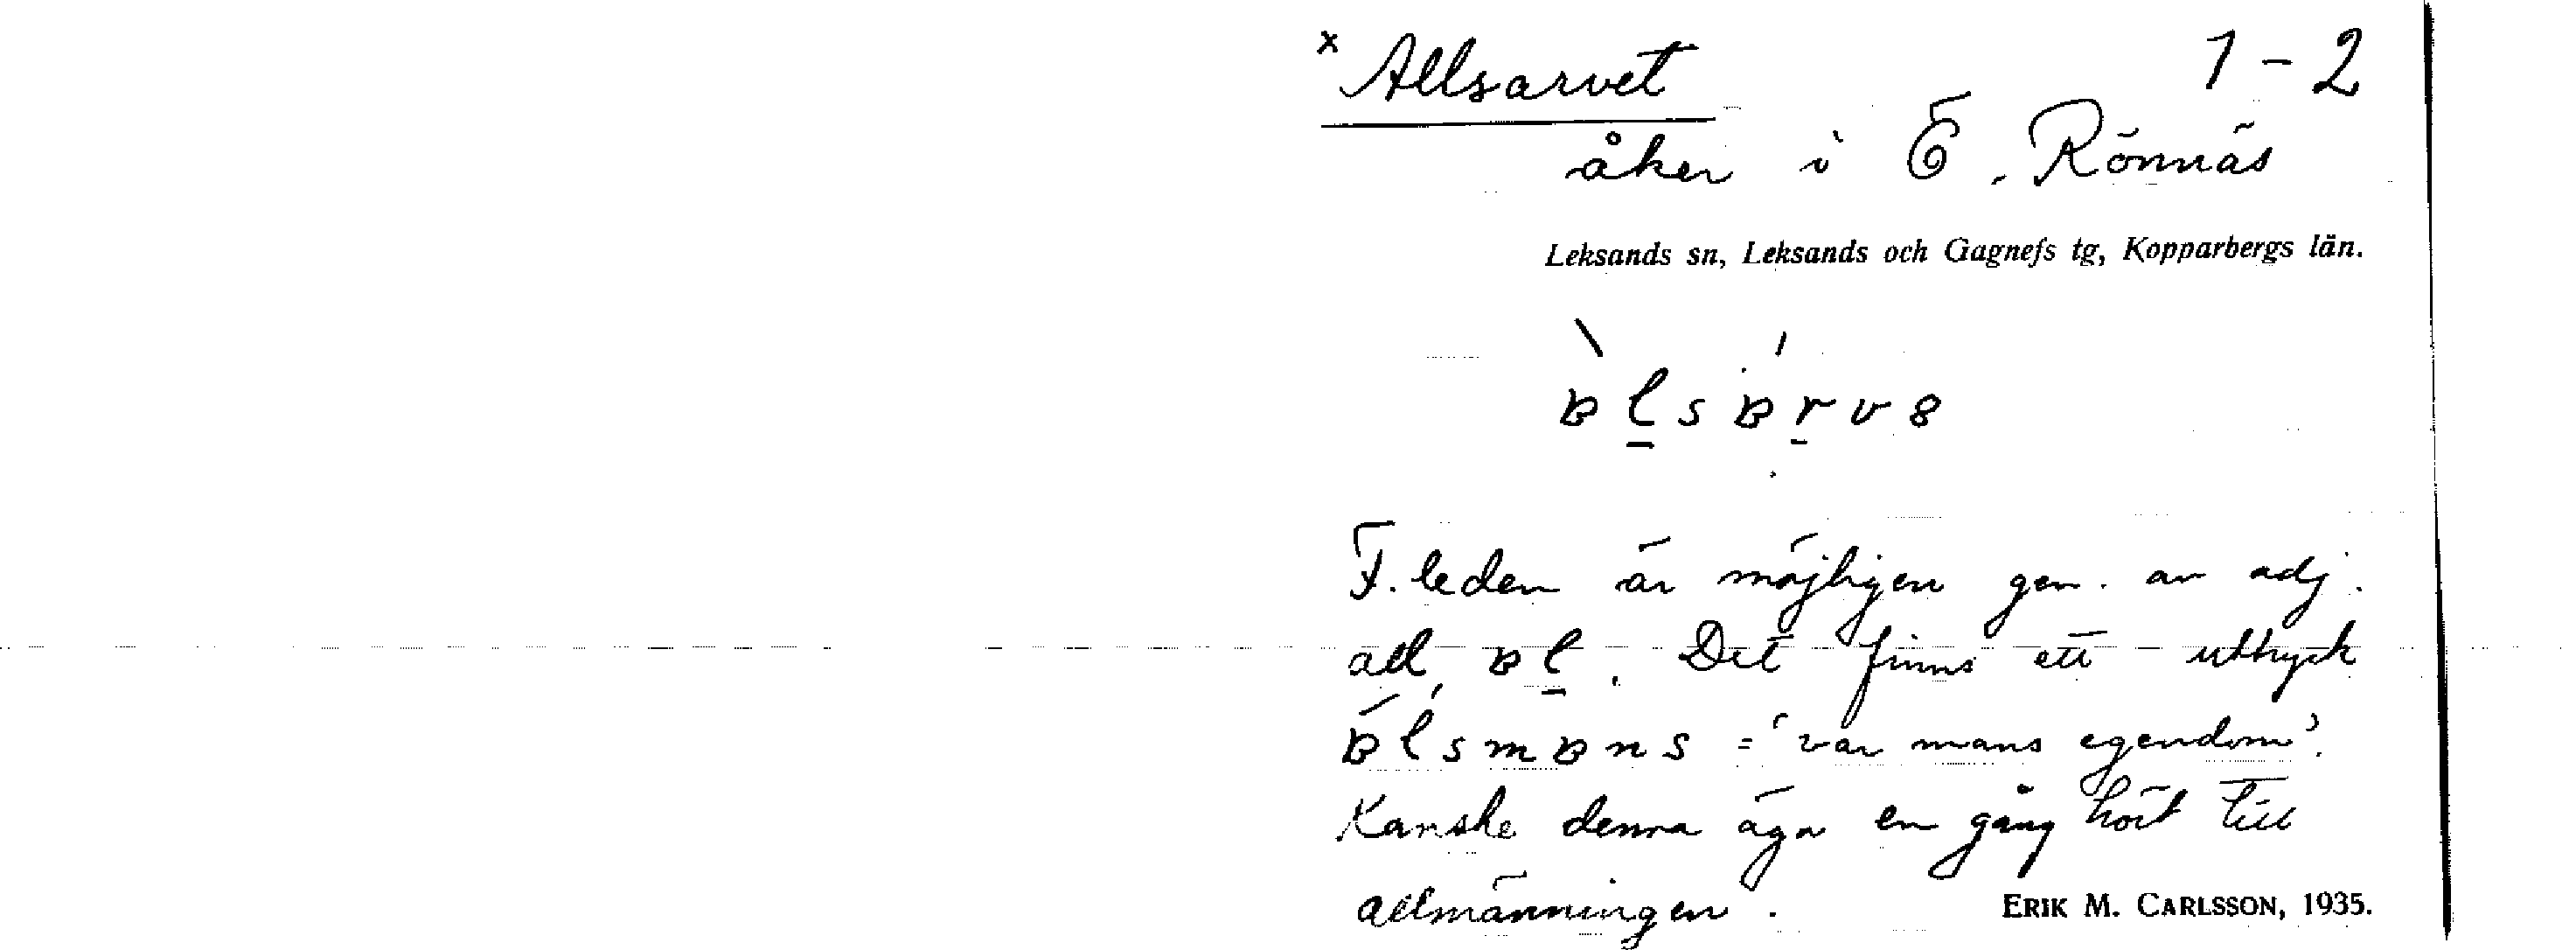 x Allsarvet 1-2
åker i Ö. Rönnäs
Leksands sn, Leksands och Gagnefs tg, Kopparbergs län.
F. leden är möjligen gen. av adj.
all, Det finns ett uttryck
= 'var mans egendom'.
Kanske denna äga en gång hört till
allmänningen.
ERIK M. CARLSSON, 1935.